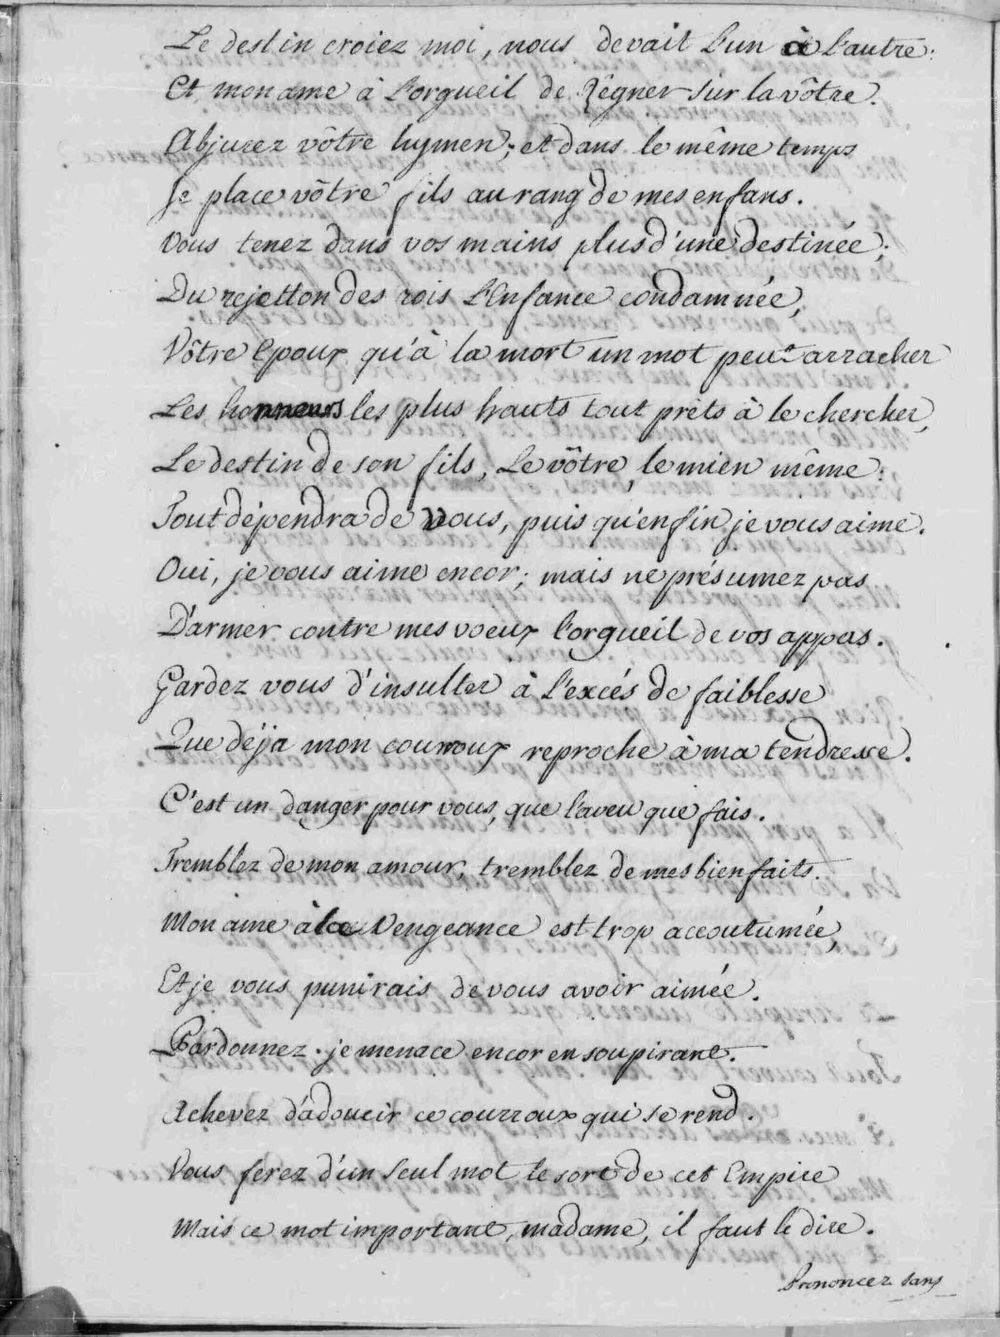 Le destin croiez moi, nous devait l'un à l'autre:
Et mon ame à l'orgueil de Règner sur la vôtre.
Abjurez vôtre hymen; et dans le même temps
Je place vôtre fils au rang de mes enfans.
Vous tenez dans vos mains plus d'une destinée;
Du rejetton des rois l'Enfance condamnée,
Vôtre Epoux qu'à la mort un mot peut arracher
Les honneurs les plus hauts tout prêts à le chercher,
Le destin de son fils, Le vôtre, le mien même:
Tout dépendra de vous, puis qu'enfin je vous aime.
Oui, je vous aime encor; mais ne présumez pas
D'armer contre mes voeux l'orgueil de vos appas.
Gardez vous d'insulter à l'excés de faiblesse
Que déja mon courroux reproche à ma tendresse.
C'est un danger pour vous, que l'aveu que fais.
Tremblez de mon amour; tremblez de mes bienfaits.
Mon ame à la Vengeance est trop accoutumée,
Et je vous punirais de vous avoir aimée.
Pardonnez. je menace encor en soupirant.
Achevez d'adoucir ce courroux qui se rend.
Vous ferez d'un seul mot le sort de cet Empire
Mais ce mot important, madame, il faut le dire.
Prononcez sans